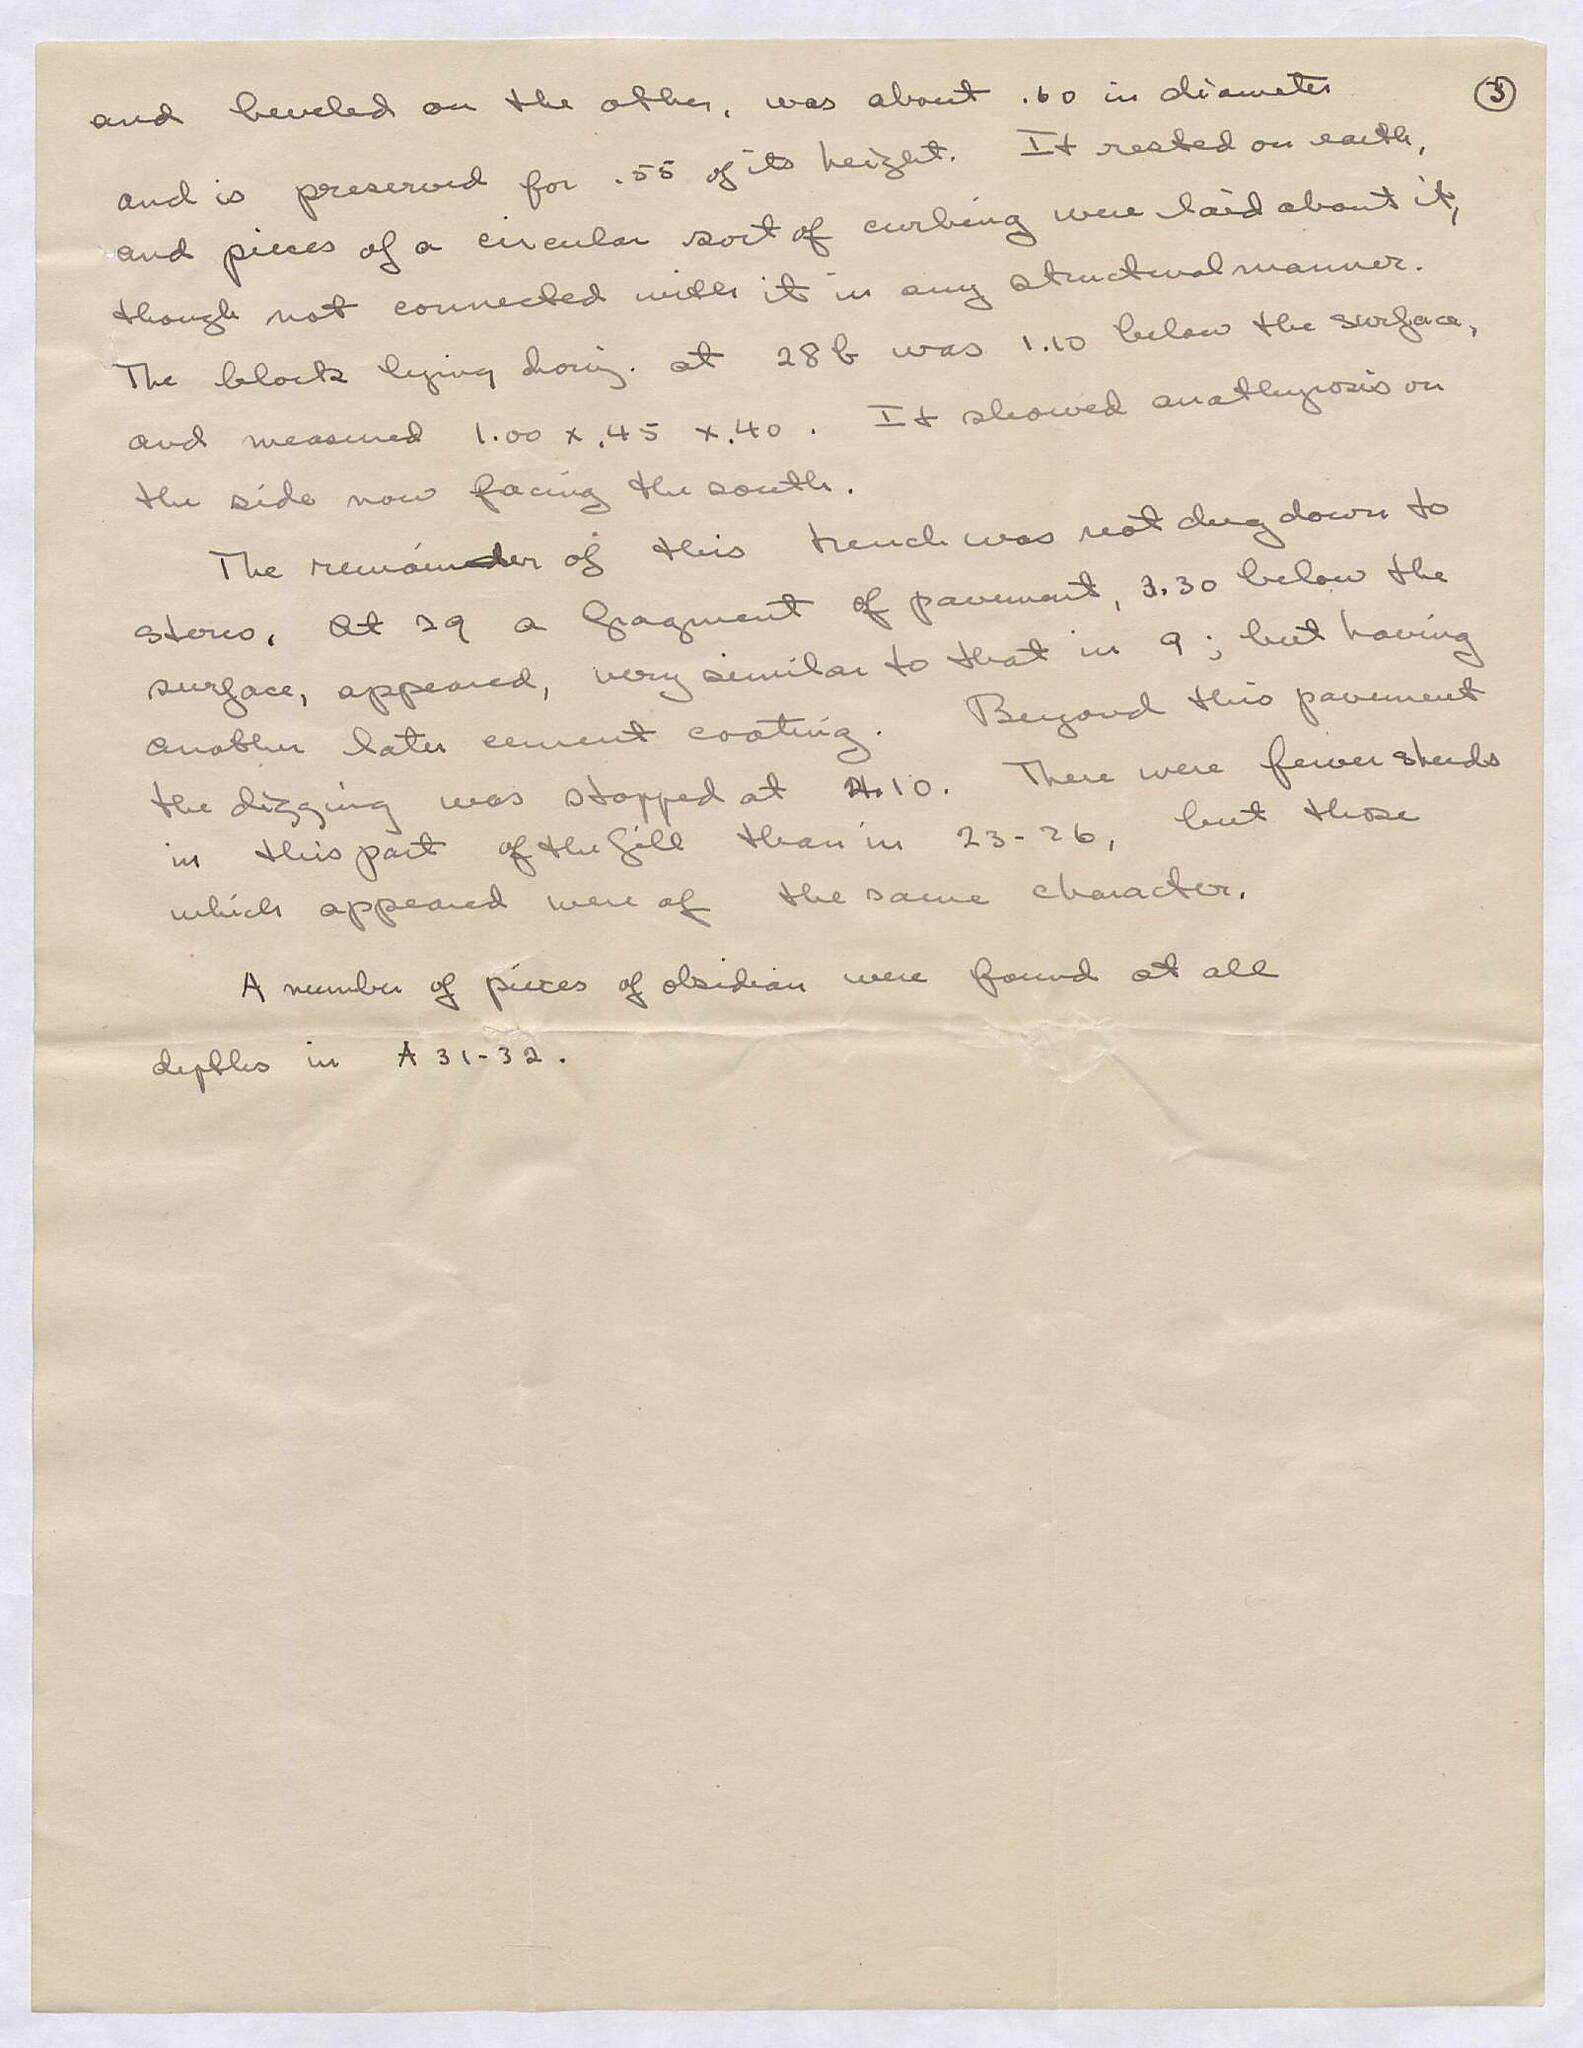 and beveled on the other, was about .60 in diameter
and is preserved for .55 of its height. It rested on earth,
and pieces of a circular sort of curbing were laid about it,
though not connected with it in any structural manner.
The block lying horiz. at 28b was 1.10 below the surface,
and measured 1.00 x .45 x .40. It showed anathyrosis on
the side now facing the south.
The remainder of this trench was not dug down to
stereo. At 29 a fragment of pavement, 3.30 below the
surface, appeared, very similar to that in 9; but having
another later cement coating. Beyond this pavement
the digging was stopped at 4.10. There were fewer sherds
in this part of the fill than in 23-26, but those
which appeared were of the same character.
A number of pieces of obsidian were found at all
depths in A 31-32.